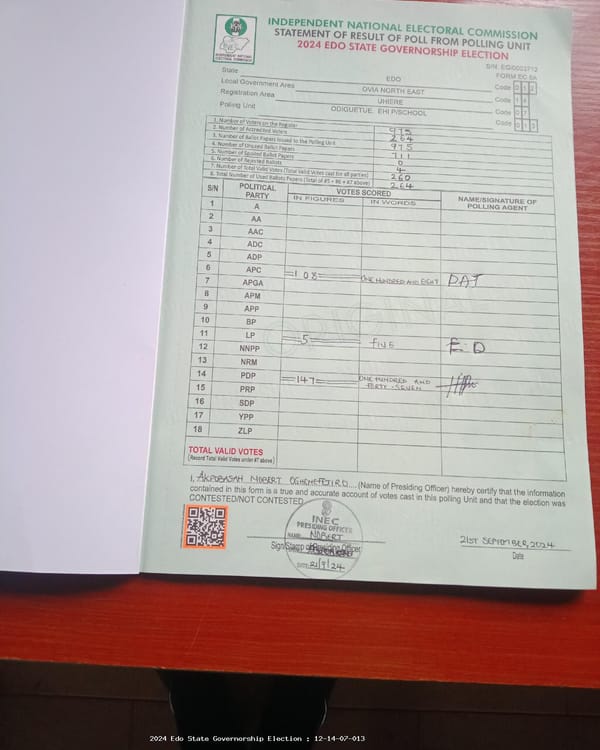 INDEPENDENT NATIONAL ELECTORAL COMMISSION
STATEMENT OF RESULT OF POLL FROM POLLING UNIT
2024 EDO STATE GOVERNORSHIP ELECTION
FORM EC 8A
State EDO Code 0 1 2
Local Government Area OVIA NORTH EAST Code 1 4
Registration Area UHIERE Code 0 7
Polling Unit ODIGUETUE. EHI P/SCHOOL Code 0 1 3
1. Number of Voters on the Register 975
2. Number of Accredited Voters 264
3. Number of Ballot Papers Issued to the Polling Unit 975
4. Number of Unused Ballot Papers 711
5. Number of Spoiled Ballot Papers 0
6. Number of Rejected Ballots 4
7. Number of Total Valid Votes (Total Valid Votes cast for all parties) 260
8. Total Number of Used Ballots Papers (Total of #5 + #6 + #7 above) 264
S/N POLITICAL PARTY VOTES SCORED NAME/SIGNATURE OF POLLING AGENT
IN FIGURES IN WORDS
1 A
2 AA
3 AAC
4 ADC
5 ADP
6 APC =108= ONE HUNDRED AND EIGHT PAT
7 APGA
8 APM
9 APP
10 BP
11 LP =5= FIVE E D
12 NNPP
13 NRM
14 PDP =147= ONE HUNDRED AND FORTY-SEVEN
15 PRP
16 SDP
17 YPP
18 ZLP
TOTAL VALID VOTES
(Record Total Valid Votes under #7 above)
I, (Name of Presiding Officer) hereby certify that the information
contained in this form is a true and accurate account of votes cast in this polling Unit and that the election was
CONTESTED/NOT CONTESTED
INEC
PRESIDING OFFICER
NAME: NOBERT
Sign/Stamp of Presiding Officer
DATE: 21/9/24
21ST SEPTEMBER, 2024
Date
2024 Edo State Governorship Election : 12-14-07-013